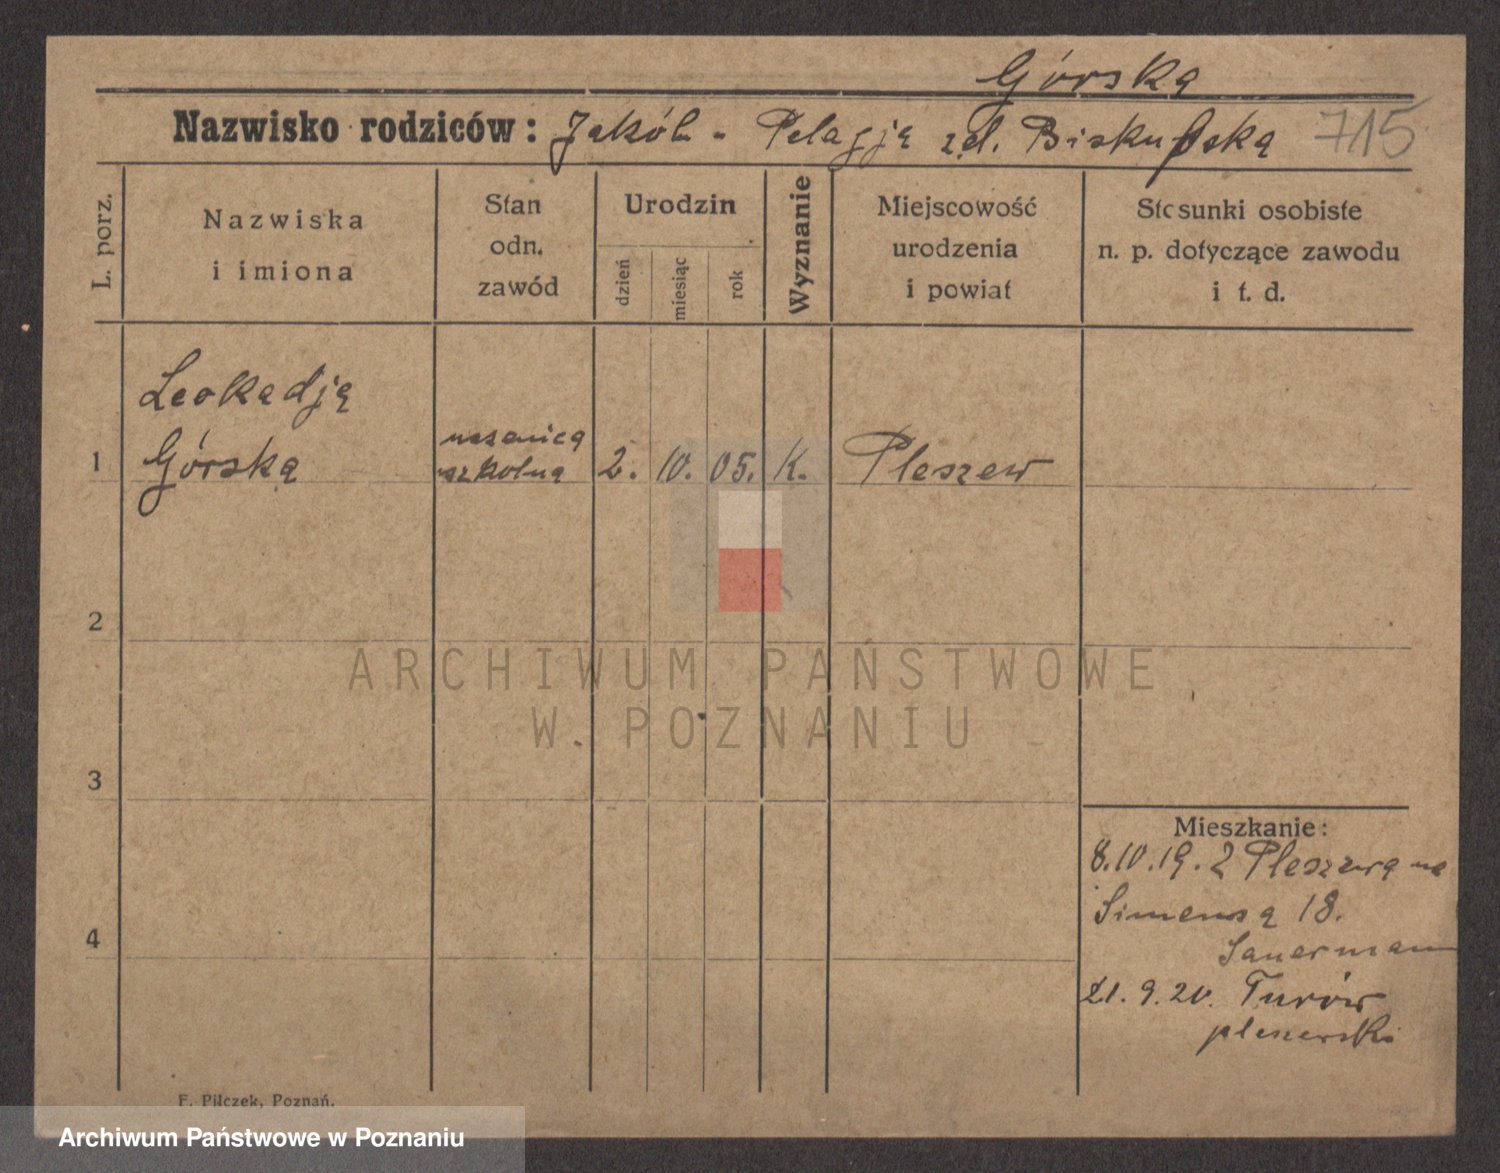 Górska
Nazwisko rodziców: Jakób - Pelagja zd. Biskupska 715
L. porz.
Nazwiska
i imiona
Stan
odn.
zawód
Urodzin
dzień
miesiąc
rok
Wyznanie
Miejscowość
urodzenia
i powiat
Stosunki osobiste
n. p. dotyczące zawodu
i t. d.
Leokadja
1 Górska
uczenica
szkolna
2. 10. 05. K. Pleszew
2
3
4
ARCHIWUM PAŃSTWOWE
W POZNANIU
Mieszkanie:
8.10.19. z Pleszewa na
18.
Sauermann
21. 9. 20. Turów
pleszewski
F. Pilczek, Poznań.
Archiwum Państwowe w Poznaniu